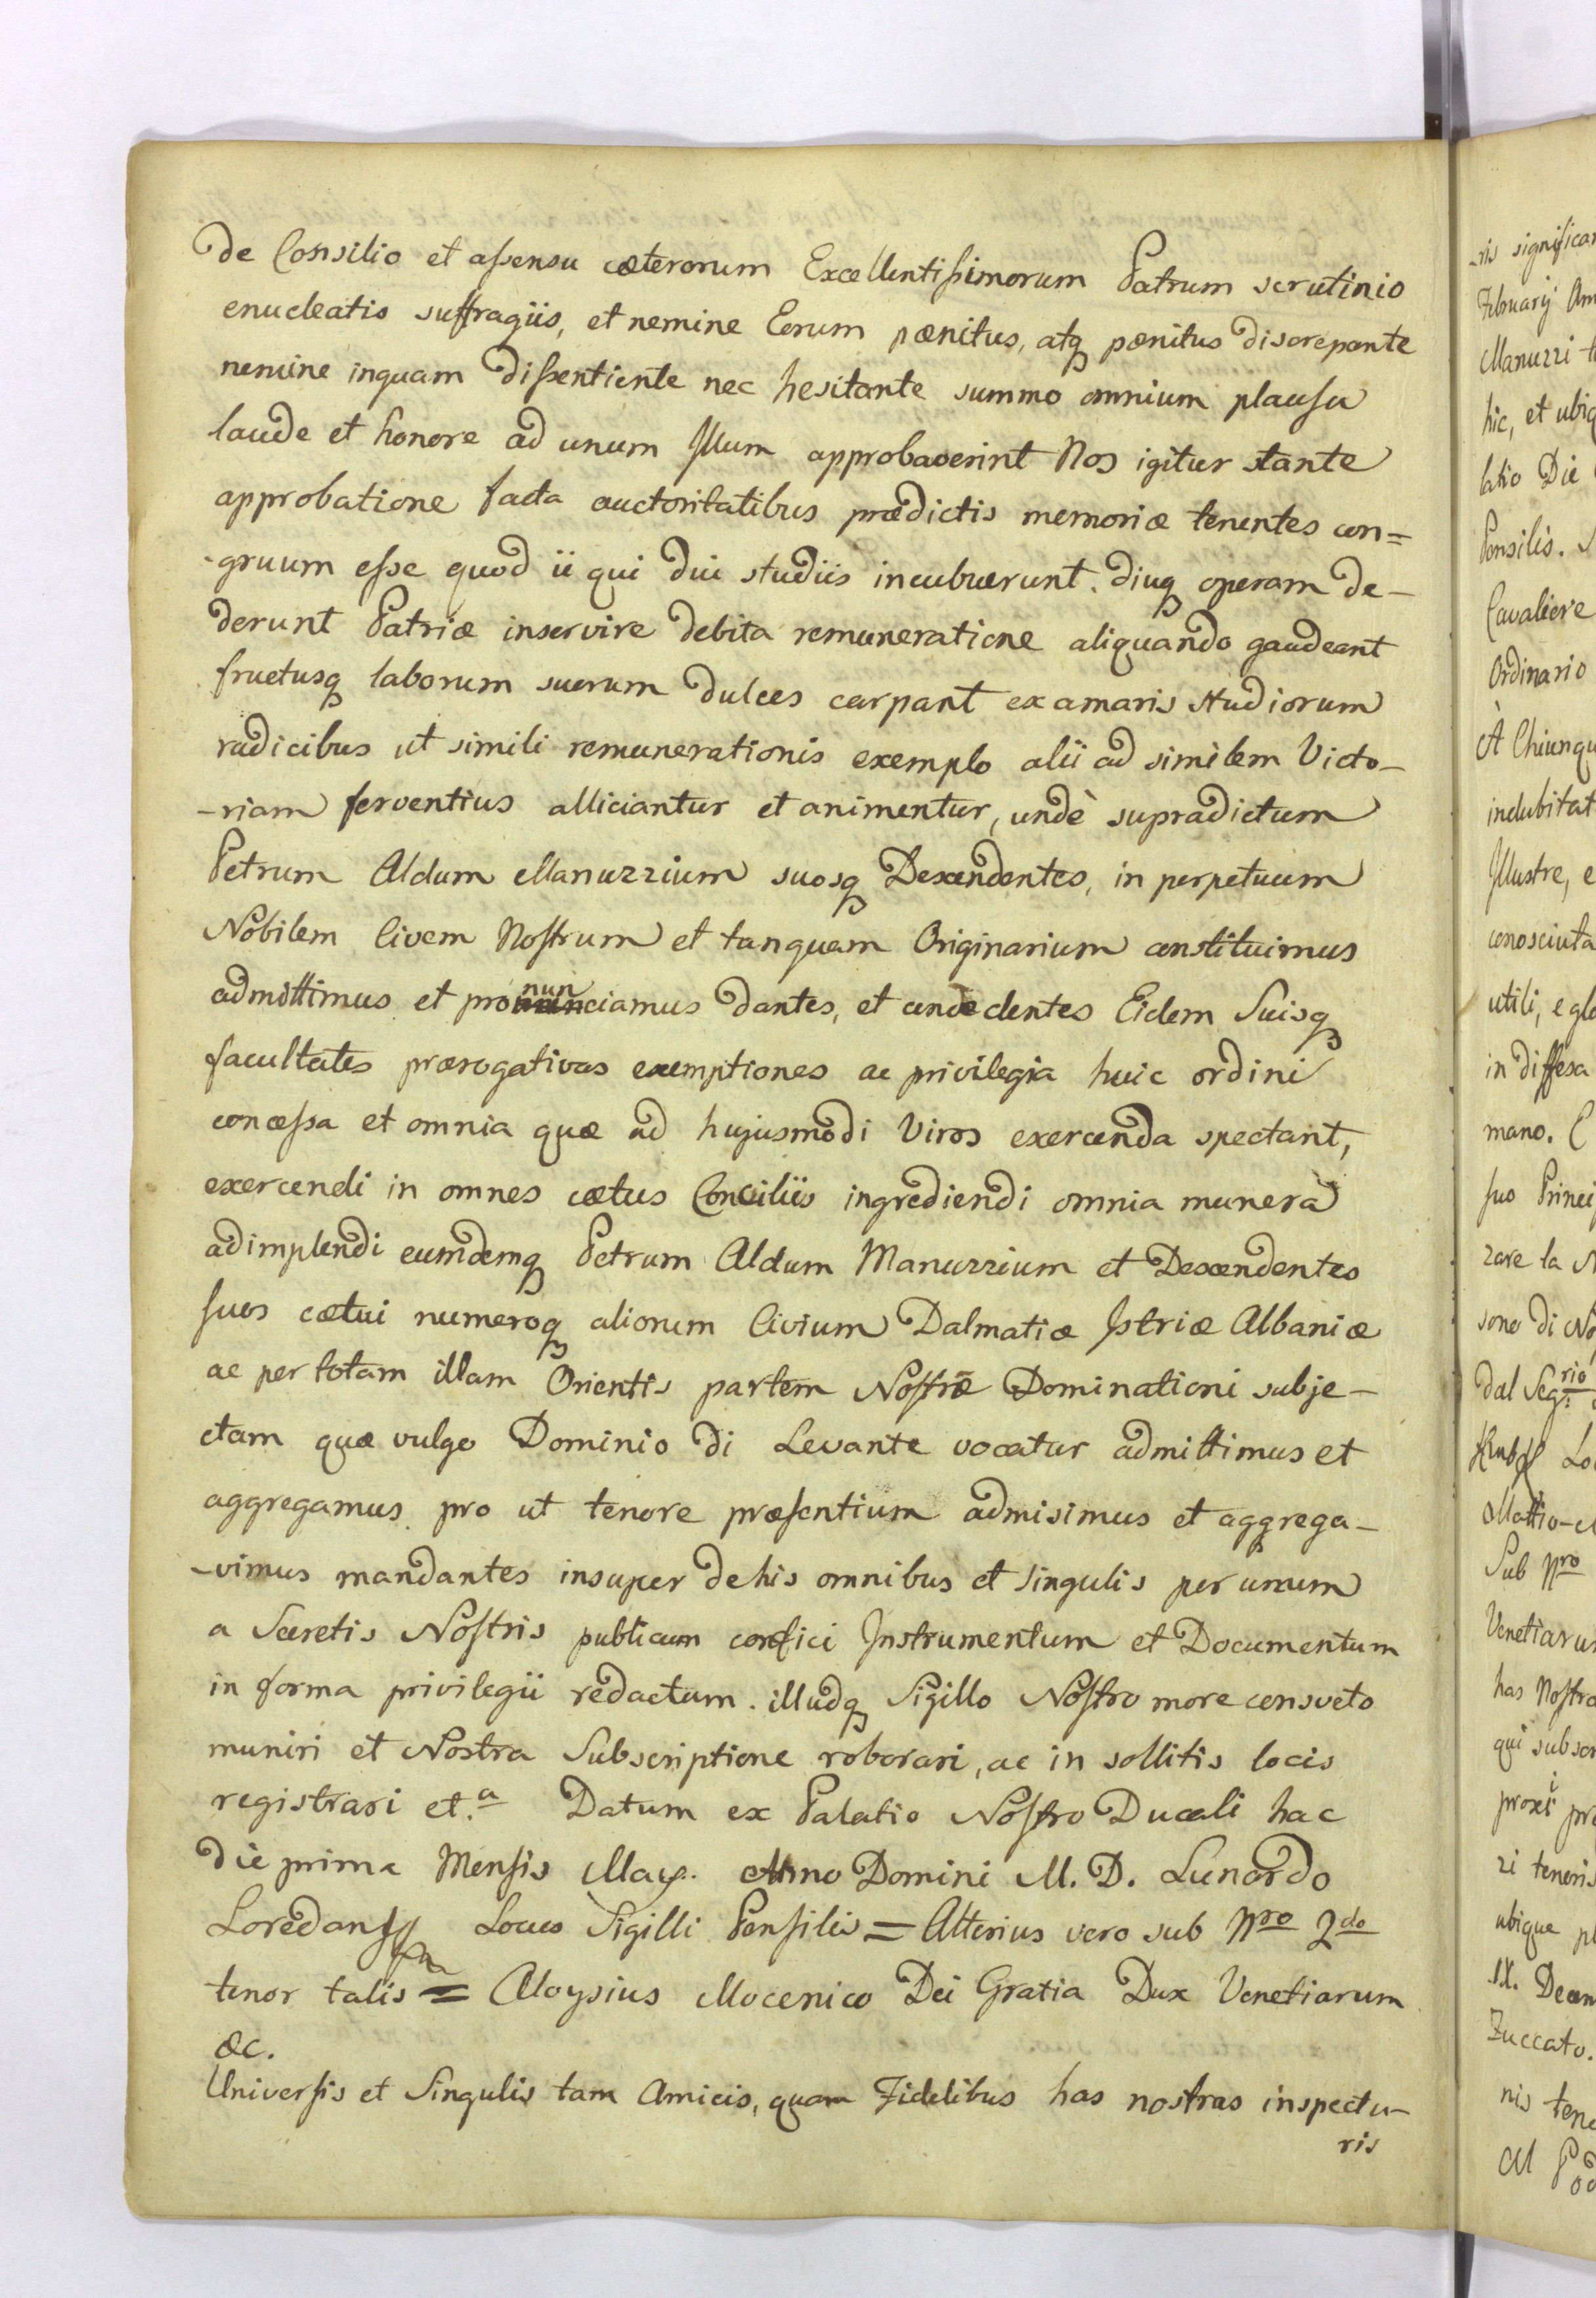 de Consilio et aſsensu cæterorum Excellentiſsimorum Patrum scrutinio
enucleatis suffragiis, et nemine Eorum pænitus, atq pænitus discrepante
nemine inquam diſsentiente nec hesitante summo omnium plauſu
laude et honore ad unum Illum approbaverint Nos igitur stante
approbatione facta auctoritatibus prædictis memoriæ tenentes con=
-gruum eſse quod ii qui diu studiis incubuerunt. diuq operam de-
derunt Patriæ inservire debita remuneratione aliquando gaudeant
fructusq laborum suorum dulces carpant ex amaris studiorum
radicibus ut simili remunerationis exemplo alii ad similem Victo-
-riam ferventius alliciantur et animentur, undè supradictum
Petrum Aldum Manuzzium suosq Descendentes, in perpetuum
Nobilem Civem Noſtrum et tanquam Originarium constituimus
admittimus et pronunciamus dantes, et concedentes Eidem Suisq
facultates prærogativas exemptiones ac privilegia huic ordini
conceſsa et omnia quæ ad hujusmodi Viros exercenda spectant,
exercendi in omnes cœtus Conciliis ingrediendi omnia munera
adimplendi eumdemq Petrum Aldum Manuzzium et Descendentes
ſuos cœtui numeroq aliorum Civium Dalmatiæ Istriæ Albaniæ
ac per totam illam Orientis partem Noſtræ Dominationi subje-
ctam quæ vulgo Dominio di Levante vocatur admittimus et
aggregamus. pro ut tenore præſentium admisimus et aggrega-
-vimus mandantes insuper de his omnibus et singulis per unum
a Secretis Noſtris publicum confici Instrumentum et Documentum
in forma privilegii redactum. illudq Sigillo Noſtro more consveto
muniri et Nostra Subscriptione roborari, ac in sollitis locis
registrari et.a Datum ex Palatio Noſtro Ducali hac
die prima Menſis May. Anno Domini M. D. Lunardo
Loredan Locus Sigilli Penſilis = Alterius vero sub Nro 2do
tenor talis = Aloysius Mocenico Dei Gratia Dux Venetiarum
&c.
Univerſis et Singulis tam Amicis, quam Fidelibus has nostras inspectu-
ris